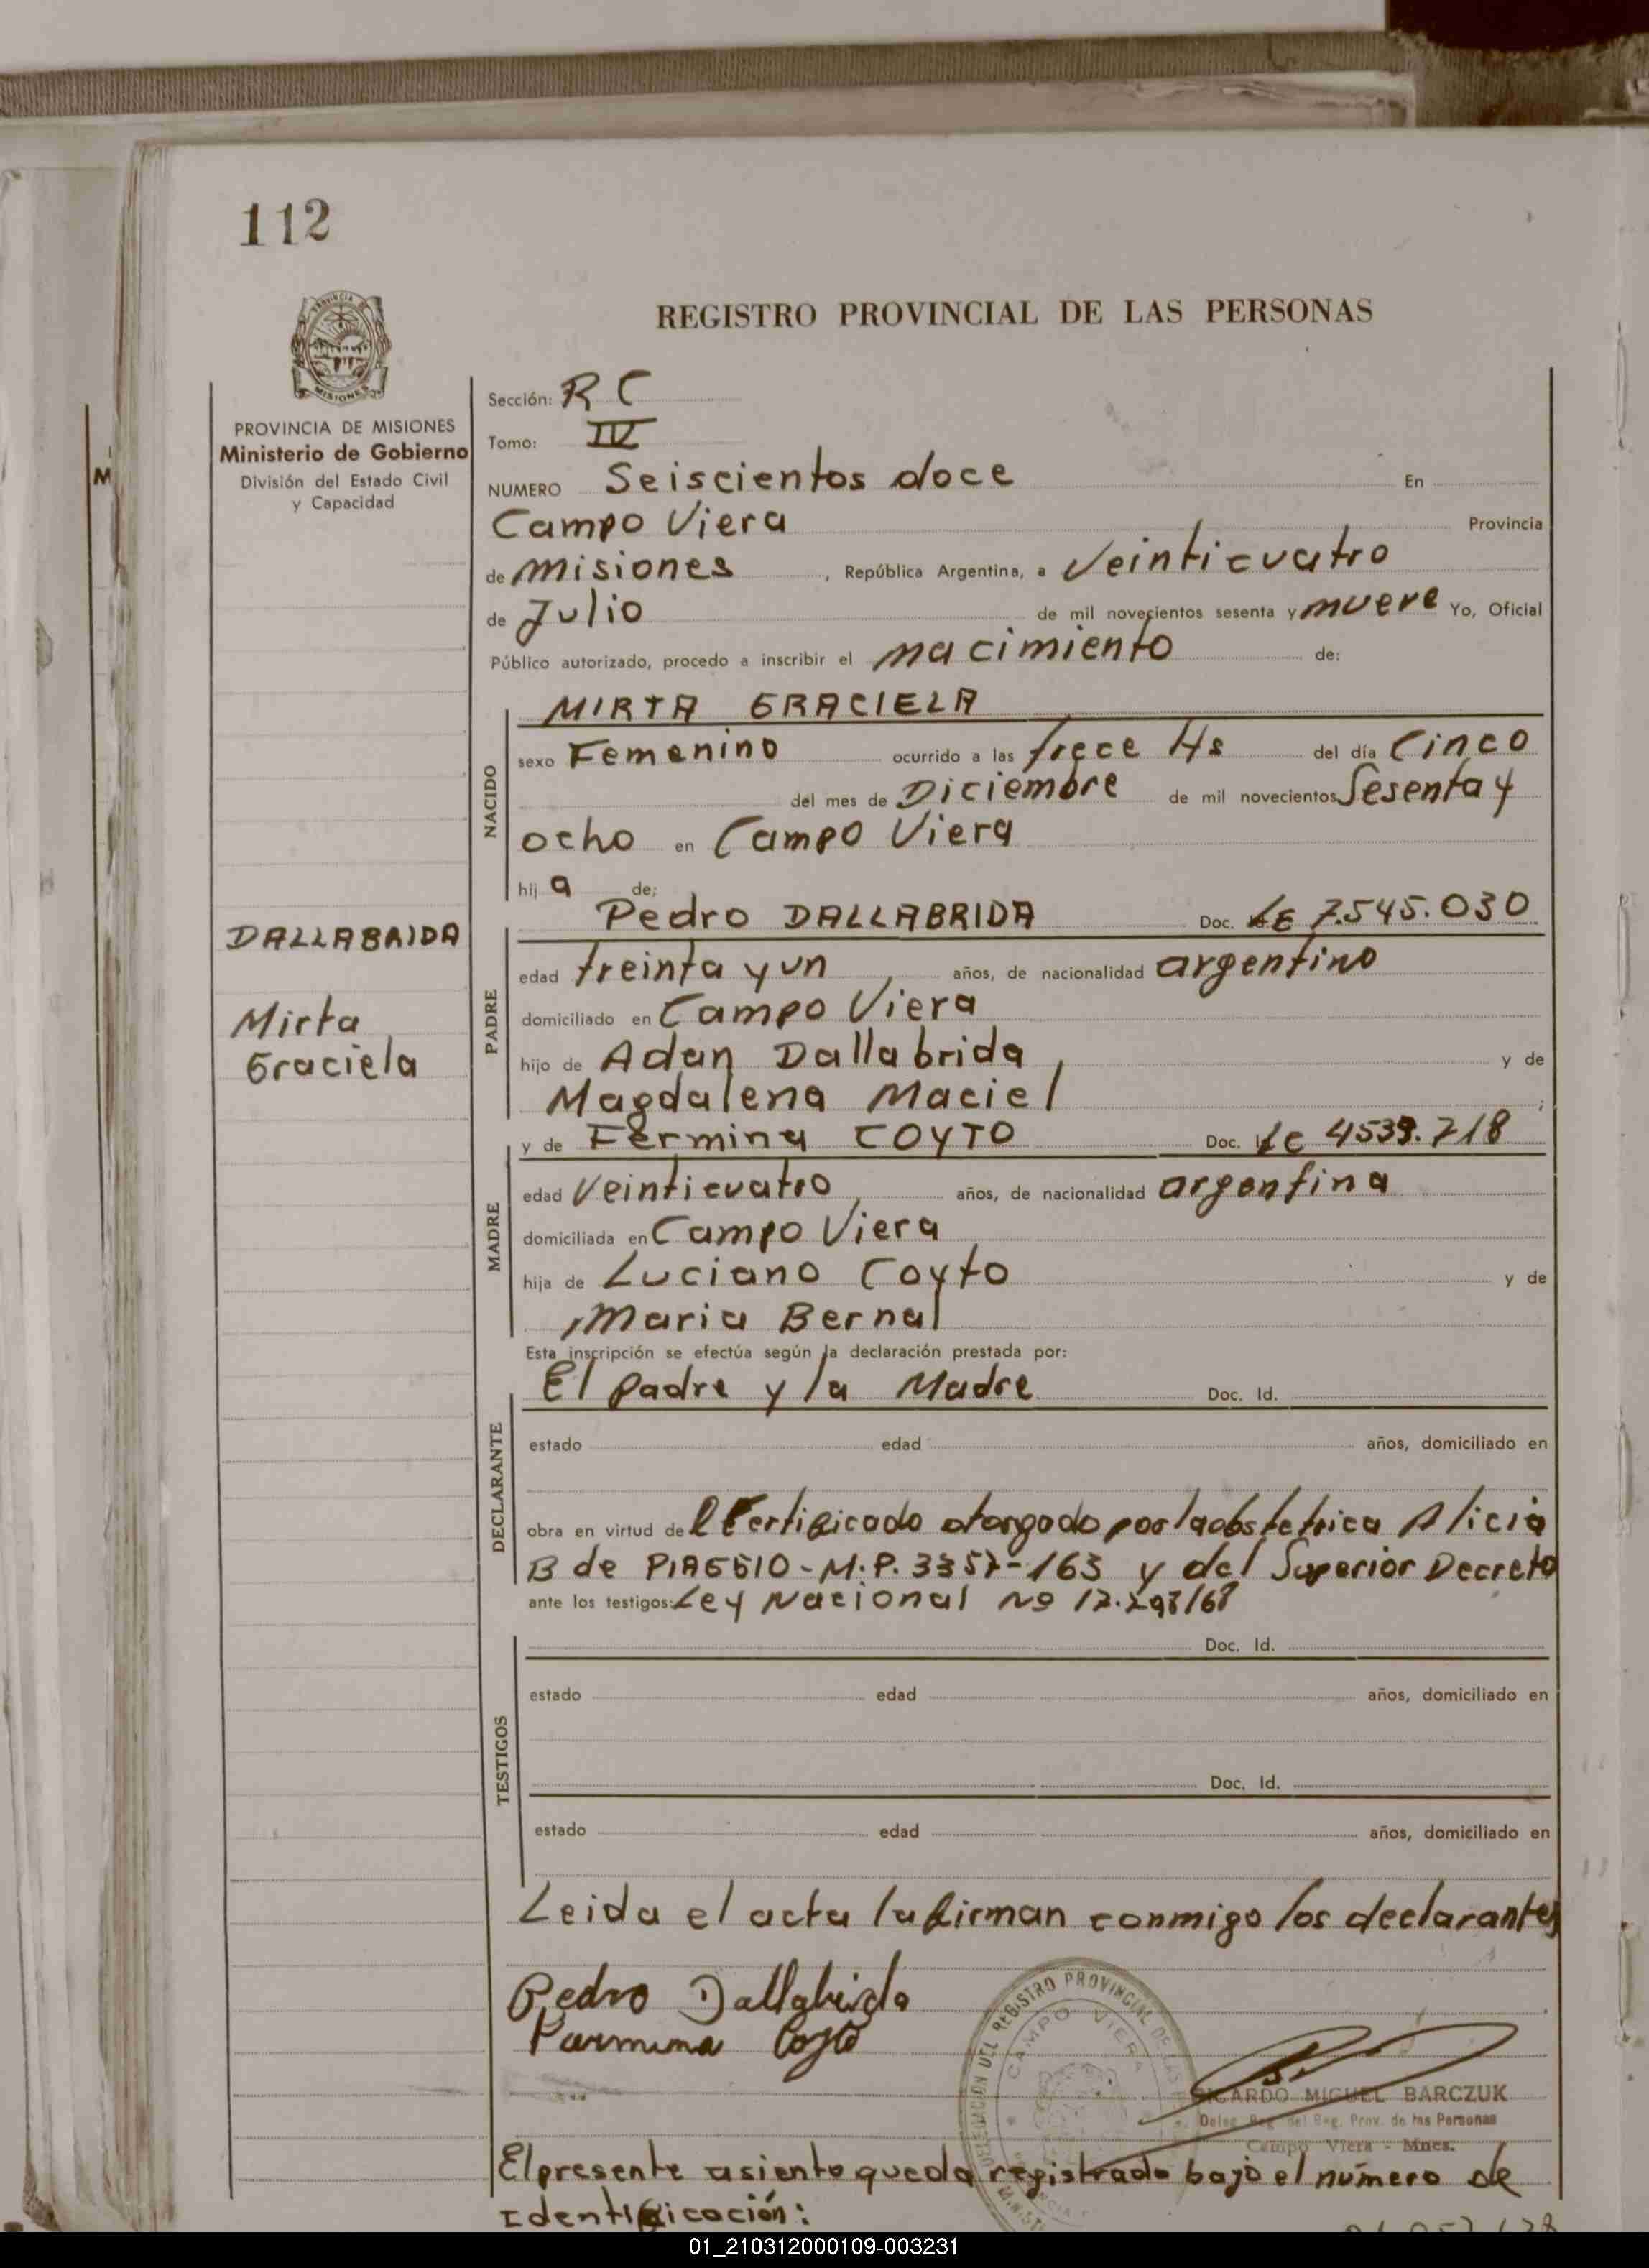 112
REGISTRO PROVINCIAL DE LAS PERSONAS
PROVINCIA DE MISIONES
Ministerio de Gobierno
División del Estado Civil
y Capacidad
Sección: R C
Tomo: IV
NUMERO Seiscientos doce En
Campo Viera Provincia
de misiones, República Argentina, a Veinticuatro
de Julio de mil novecientos sesenta y nueve Yo, Oficial
Público autorizado, procedo a inscribir el nacimiento de:
NACIDO
MIRTA GRACIELA
sexo Femenino ocurrido a las trece Hs del día Cinco
del mes de Diciembre de mil novecientos Sesenta y
ocho en Campo Viera
hij a de:
DALLABRIDA
Mirta
Graciela
PADRE
Pedro DALLABRIDA Doc. LE 7.545.030
edad treinta y un años, de nacionalidad argentino
domiciliado en Campo Viera
hijo de Adan Dallabrida, y de
Magdalena Maciel ;
MADRE
y de Fermina COYTO Doc. LC 4539.718
edad Veinticuatro años, de nacionalidad argentina
domiciliada en Campo Viera
hija de Luciano Coyto y de
Maria Bernal
Esta inscripción se efectúa según la declaración prestada por:
DECLARANTE
El padre y la Madre Doc. Id.
estado edad años, domiciliado en
obra en virtud del Certificado otorgado por la obstetrica Alicia
B de M.P. 3357-163 y del Superior Decreto
ante los testigos: Ley Nacional Nº
TESTIGOS
Doc. Id.
estado edad años, domiciliado en
Doc. Id.
estado edad años, domiciliado en
Leida el acta la firman conmigo los declarantes
Pedro Dallabrida
Fermina Coyto
DELEGACION DEL REGISTRO PROVINCIAL DE LAS
CAMPO VIERA
RICARDO MIGUEL BARCZUK
Deleg. Reg. del Reg. Prov. de las Personas
Campo Viera - Mnes.
El presente asiento queda registrado bajo el número de
Identificación:
01_210312000109-003231